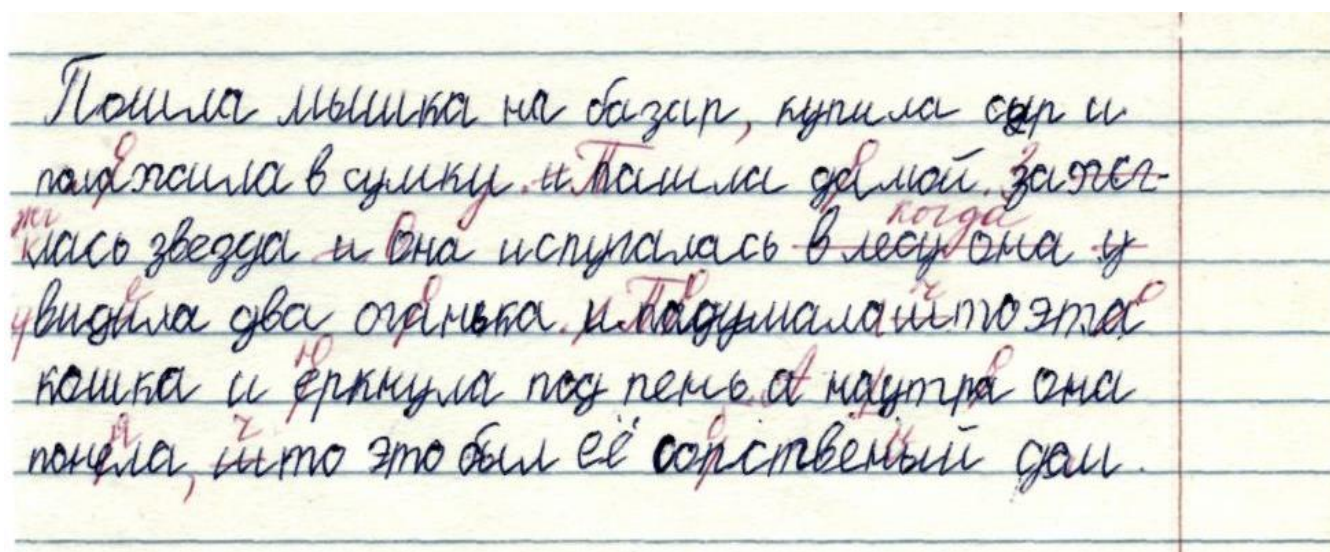 Пошла мышка на базар, купила сыр и
полажила в сумку и пашла дамой. зажег-
когда
клась звезда и она испугалась в лесу она у
видила два оганька и падумала што эта
кошка и еркнула под пень. а наутра она
понела, што это был её сопственый дом.